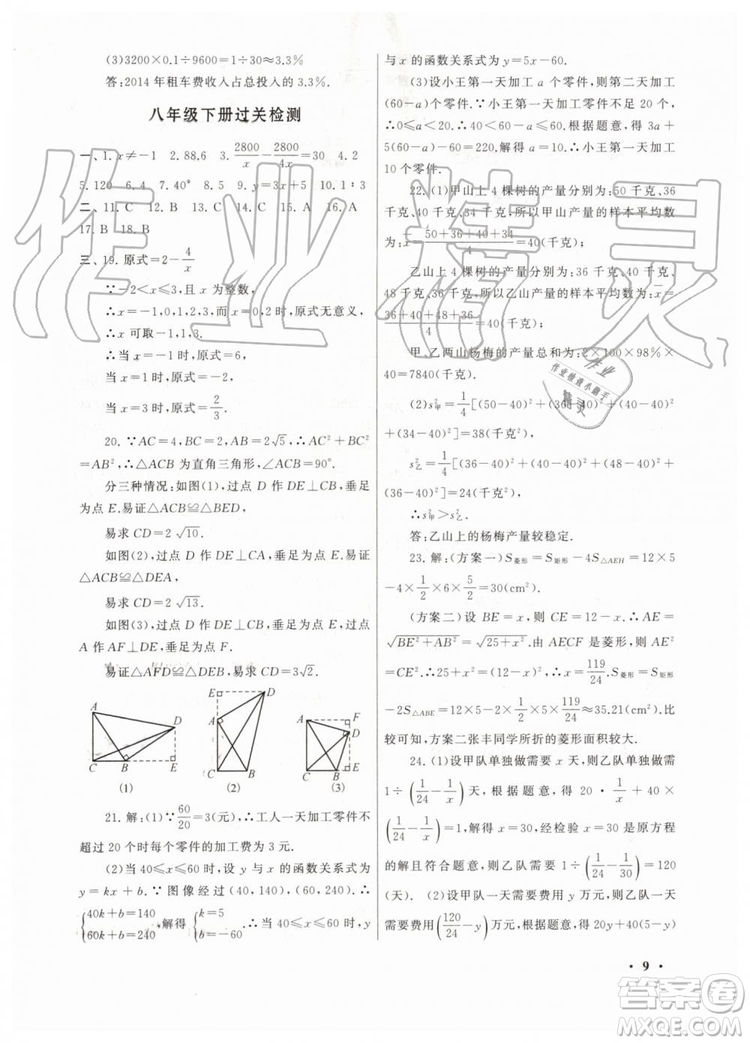 (3)3200×0.1÷9600=1÷30≈3.3%
答:2014年租车费收入占总投入的3.3%.
八年级下册过关检测
一、1.x≠-1 2.88,6 3.2800/x-2800/4x=30 4.2
5.120 6.4 7.40° 8. 9.y=3x+5 10.1∶3
二、11.C 12.B 13.C 14.C 15.A 16.A
17.B 18.B
三、19.原式=2-4/x
∵-2<x≤3,且x为整数,
∴x=-1,0,1,2,3时,原式无意义,
∴x可取-1,1,3.
当x=-1时,原式=6;
当x=1时,原式=-2;
当x=3时,原式=2/3.
20.∵AC=4,BC=2,AB=2√5,∴AC²+BC²
=AB²,∴△ACB为直角三角形,∠ACB=90°.
分三种情况:如图(1),过点D作DE⊥CB,垂足为点E.易证△ACB≌△BED
易求CD=2√10.
如图(2),过点D作DE⊥CA,垂足为点E.易证
△ACB≌△DEA,
易求CD=2√13.
如图(3),过点D作DE⊥CB,垂足为点E,过点
A作AF⊥DE,垂足为点F.
易证△AFD≌△BED,易求CD=3√2.
A D C B E
(1)
E D A C B
(2)
A F D C B E
(3)
21.解:(1)∵60/20=3(元),∴工人一天加工零件不
超过20个时每个零件的加工费为3元.
(2)当40≤x≤60时,设y与x的函数关系式为
y=kx+b.∵图像经过(40,140),(60,240),∴
{40k+b=140 60k+b=240,解得{k=5 b=-60,∴当40≤x≤60时,y
与x的函数关系式为y=5x-60.
(3)设小王第一天加工a个零件,则第二天加工
(60-a)个零件.∵小王第一天加工零件不足20个,
∴0≤a<20,∴40<60-a≤60.根据题意,得3a+
5(60-a)-60=220,解得a=10.答:小王第一天加工
10个零件.
22.(1)甲山上4棵树的产量分别为:50千克,36
千克,40千克,34千克,所以甲山产量的样本平均数
为:x̄=(50+36+40+34)/4=40(千克);
乙山上4棵树的产量分别为:36千克,40千克,48千克,36千克,所以乙山产量的样本平均数为x̄=
(36+40+48+36)/4=40(千克);
甲、乙两山杨梅的产量总和为:2×100×98%×
40=7840(千克)
(2)s²甲=1/4[(50-40)²+(36-40)²+(40-40)²
+(34-40)²]=38(千克²);
s²乙=1/4[(36-40)²+(40-40)²+(48-40)²+
(36-40)²]=24(千克²),
∴s²甲>s²乙.
答:乙山上的杨梅产量较稳定.
23.解:(方案一)S菱形=S矩形-4S△AEH=12×5-
4×1/2×6×5/2=30(cm²).
(方案二)设BE=x,则CE=12-x,∴AE=
√(BE²+AB²)=√(25+x²).由AECF是菱形,则AE²
=CE²,∴25+x²=(12-x)²,∴x=119/24.S菱形=S矩形
-2S△ABE=12×5-2×1/2×5×119/24≈35.21(cm²).
比较可知,方案二张丰同学所折的菱形面积较大.
24.(1)设甲队单独做需要x天,则乙队单独做需
1÷(1/24-1/x)天.根据题意,得20/x+40(1/24-1/x)
=1,解得x=30,经检验x=30是原方程
的解且符合题意,则乙队需要1÷(1/24-1/30)=120
(天).(2)设甲队一天需要费用y万元,则乙队一天
需要费用(120/24-y)万元,根据题意,得20y+40(5-
· 9 ·
作业精灵
作业
作业检查小助手
精灵
答案圈
MXQE.COM